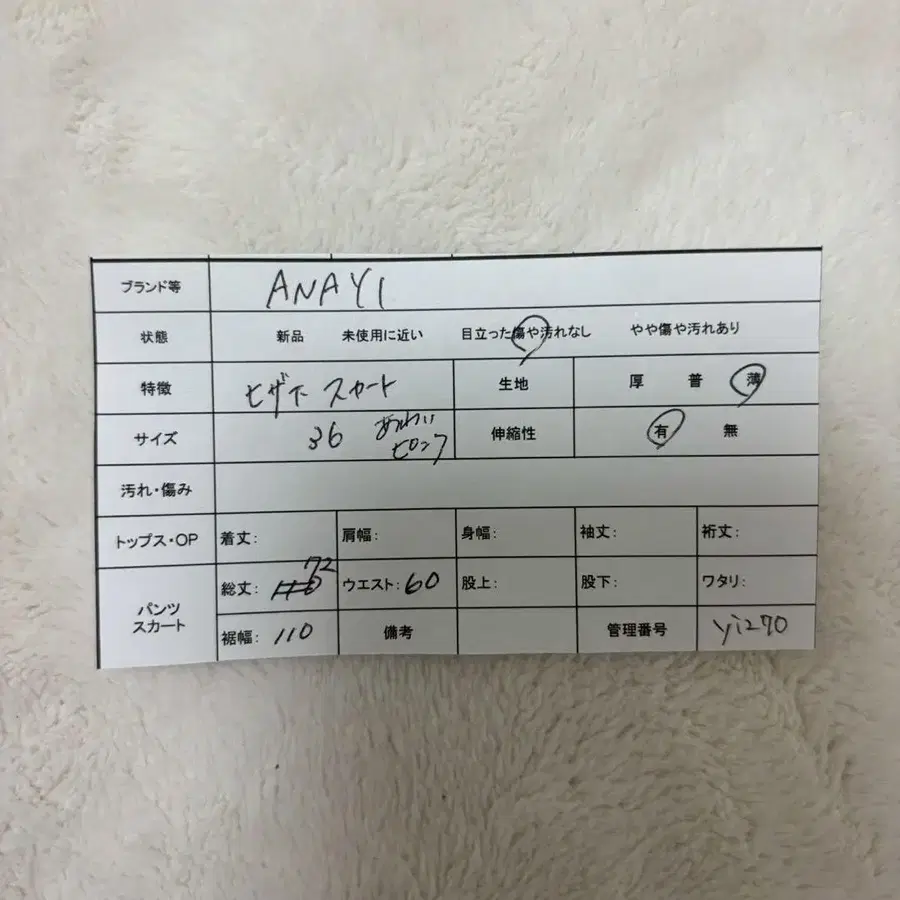 ブランド等 ANAYI
状態 新品 未使用に近い 目立った傷や汚れなし やや傷や汚れあり
特徴 ヒザ下 スカート 生地 厚 普 薄
サイズ 36 あわい ピンク 伸縮性 有 無
汚れ・傷み
トップス・OP 着丈: 肩幅: 身幅: 袖丈: 裄丈:
パンツ スカート 総丈: 72 ウエスト: 60 股上: 股下: ワタリ:
裾幅: 110 備考 管理番号 yi270